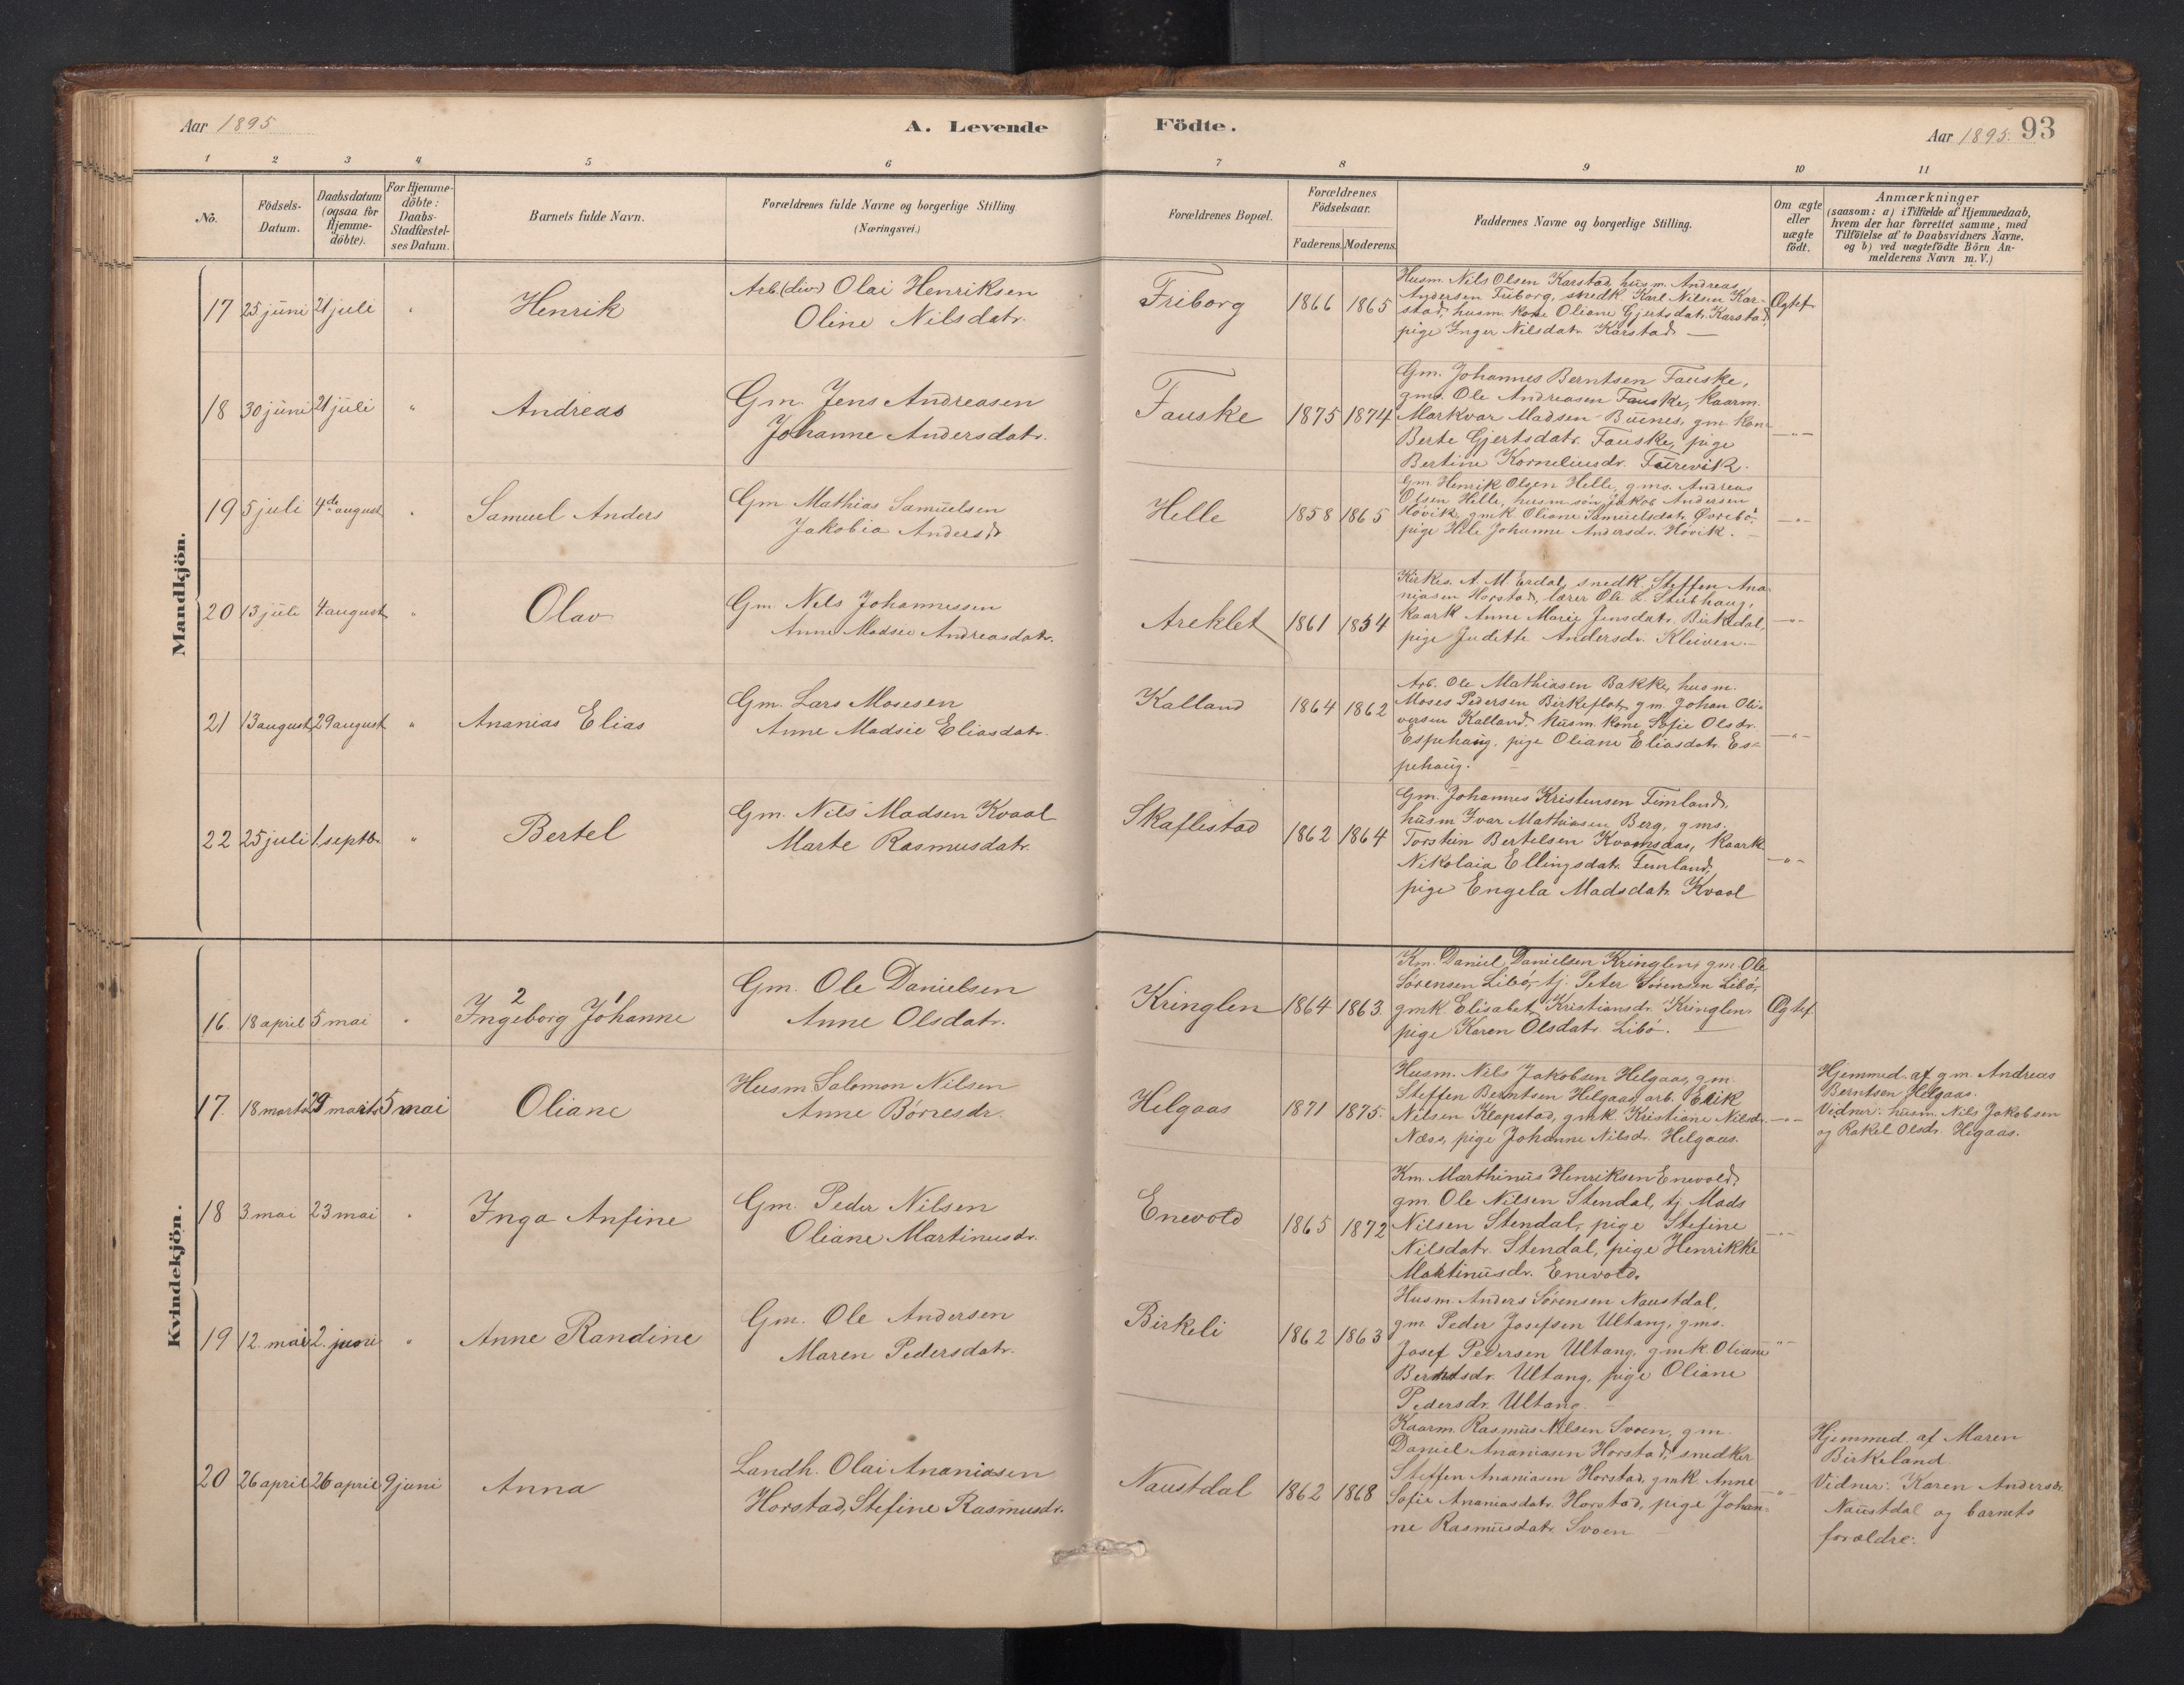 Aar 1895
A. Levende
Födte.
Aar 1895. 93
1 2 3 4 5 6 7 8 9 10 11
No.
Födsels-
Datum.
Daabsdatum
(ogsaa for
Hjemme-
döbte).
For Hjemme-
döbte:
Daabs-
Stadfæstel-
ses Datum.
Barnets fulde Navn.
Forældrenes fulde Navne og borgerlige Stilling
(Næringsvei.)
Forældrenes Bopæl.
Forældrenes
Födselsaar.
Faderens. Moderens.
Faddernes Navne og borgerlige Stilling.
Om ægte
eller
uægte
födt.
Anmærkninger
(saasom: a) i Tilfælde af Hjemmedaab,
hvem der har forrettet samme, med
Tilföielse af to Daabsvidners Navne,
og b) ved uægtefödte Börn An-
melderens Navn m. V.)
Mandkjön.
17 25 juni 21 juli " Henrik
Arb. (div) Olai Henriksen
Oline Nilsdatr.
Friborg 1866 1865
Husm. Nils Olsen Karstad, husm. Andreas
Andersen Friborg, snedk. Karl Nilsen Kar-
stad, husm. kone Oliane Gjertsdatr. Karstad,
pige Inger Nilsdatr. Karstad. —
Ægtef
18 30 juni 21 juli " Andreas
Gm. Jens Andreasen
Johanne Andersdatr.
Fauske 1875 1874
Gm. Johannes Berntsen Fauske,
gms. Ole Andreasen Fauske, kaarm.
Markvar Madsen Buenes, gm. kon
Berte Gjertsdatr. Fauske, pige
Bertine Korneliusdr. Furevik.
—"—
19 5 juli 4de august " Samuel Anders
Gm Mathias Samuelsen
Jakobia Andersdr
Helle 1858 1865
Gm. Henrik Olsen Helle, gms. Andreas
Olsen Helle, husm. søn Jakob Andersen
Høvik, gmk. Oliane Samuelsdatr. Øvrebø,
pige Hele Johanne Andersdr. Høvik. —
—"—
20 13 juli 4 august " Olav
Gm. Nils Johannessen
Anne Madsie Andreasdatr.
Areklet 1861 1854
Kirkes. A. M. Erdal, snedk. Steffen Ana-
niasen Horstad, lærer Ole L. Stubhaug,
kaark Anne Marie Jensdatr. Birkedal,
pige Judithe Andersdr. Kleiven. —
—"—
21 13 august 29 august " Ananias Elias
Gm. Lars Mosesen
Anne Madsie Eliasdatr.
Kalland 1864 1862
Arb. Ole Mathiasen Bakke, husm.
Moses Pedersen Birkeflot, gm. Johan Oli-
versen Kalland, husm. kone Sofie Olsdr.
Espehaug, pige Oliane Eliasdatr. Es-
pehaug. —
—"—
22 25 juli 1. septbr. " Bertel
Gm. Nils Madsen Kvaal
Marte Rasmusdatr.
Skaflestad 1862 1864
Gm. Johannes Kristensen Fimland,
husm Ivar Mathiasen Berg, gms.
Torstein Bertelsen Kvamsdas, kaark
Nikolaia Ellingsdatr. Fimland,
pige Engela Madsdatr. Kvaal
—"—
Kvindekjön.
16. 18 april 5 mai " 2 Ingeborg 1 Johanne
Gm. Ole Danielsen
Anne Olsdatr.
Kringlen 1864 1863.
Km. Daniel Danielsen Kringlen, gm. Ole
Sørensen Libø, tj. Peter Sørensen Libø,
gmk. Elisabet Kristiansdr. Kringlen,
pige Karen Olsdatr. Libø. —
Ægtef
17. 18 marts 29 marts 5 mai Oliane
Husm. Salomon Nilsen
Anne Børresdr.
Helgaas 1871 1875.
Husm. Nils Jakobsen Helgaas, gm.
Steffen Berntsen Helgaas, arb. Erik
Nilsen Klapstad, gmk Kristiane Nilsdr.
Næss, pige Johanne Nilsdr. Helgaas.
—"—
Hjemmed. af gm. Andreas
Berntsen Helgaas.
Vidner: husm. Nils Jakobsen
og Rakel Olsdr. Hlgaas.
18 3 mai 23 mai " Inga Anfine
Gm. Peder Nilsen
Oliane Martinusdr.
Enevold 1865 1872
Km. Marthinus Henriksen Enevold,
gm. Ole Nilsen Stendal, tj. Mads
Nilsen Stendal, pige Stefine
Nilsdatr. Stendal, pige Henrikke
Martinusdr. Enevold.
—"—
19 12. mai 2. juni " Anne Randine
Gm. Ole Andersen
Maren Pedersdatr.
Birkeli 1862 1863
Husm. Anders Sørensen Naustdal,
gm. Peder Josefsen Ultang, gms.
Josef Pedersen Ultang, gmk. Oliane
Berntsdr. Ultang, pige Oliane
Pedersdr. Ultang. —
"
20 26 april 26 april 9 juni Anna
Landh. Olai Ananiasen
Horstad, Stefine Rasmusdr.
Naustdal 1862 1868
Kaarm. Rasmus Nilsen Svoen, gm.
Daniel Ananiasen Horstad, snedker
Steffen Ananiasen Horstad, gmk. Anne
Sofie Ananiasdatr. Horstad, pige Johan-
ne Rasmusdatr. Svoen
—"—
Hjemmed. af Maren
Birkeland.
Vidner: Karen Andersdr.
Naustdal og barnets
forældre.